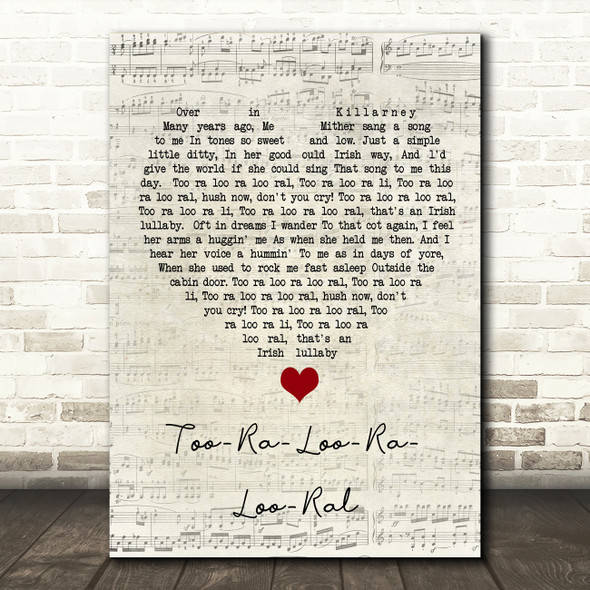 Over in Killarney
Many years ago, Me Mither sang a song
to me In tones so sweet and low. Just a simple
little ditty, In her good ould Irish way, And l'd
give the world if she could sing That song to me this
day. Too ra loo ra loo ral, Too ra loo ra li, Too ra loo
ra loo ral, hush now, don't you cry! Too ra loo ra loo ral,
Too ra loo ra li, Too ra loo ra loo ral, that's an Irish
lullaby. Oft in dreams I wander To that cot again, I feel
her arms a huggin' me As when she held me then. And I
hear her voice a hummin' To me as in days of yore,
When she used to rock me fast asleep Outside the
cabin door. Too ra loo ra loo ral, Too ra loo ra
li, Too ra loo ra loo ral, hush now, don't
you cry! Too ra loo ra loo ral, Too
ra loo ra li, Too ra loo ra
loo ral, that's an
Irish lullaby
Too-Ra-Loo-Ra-
Loo-Ral